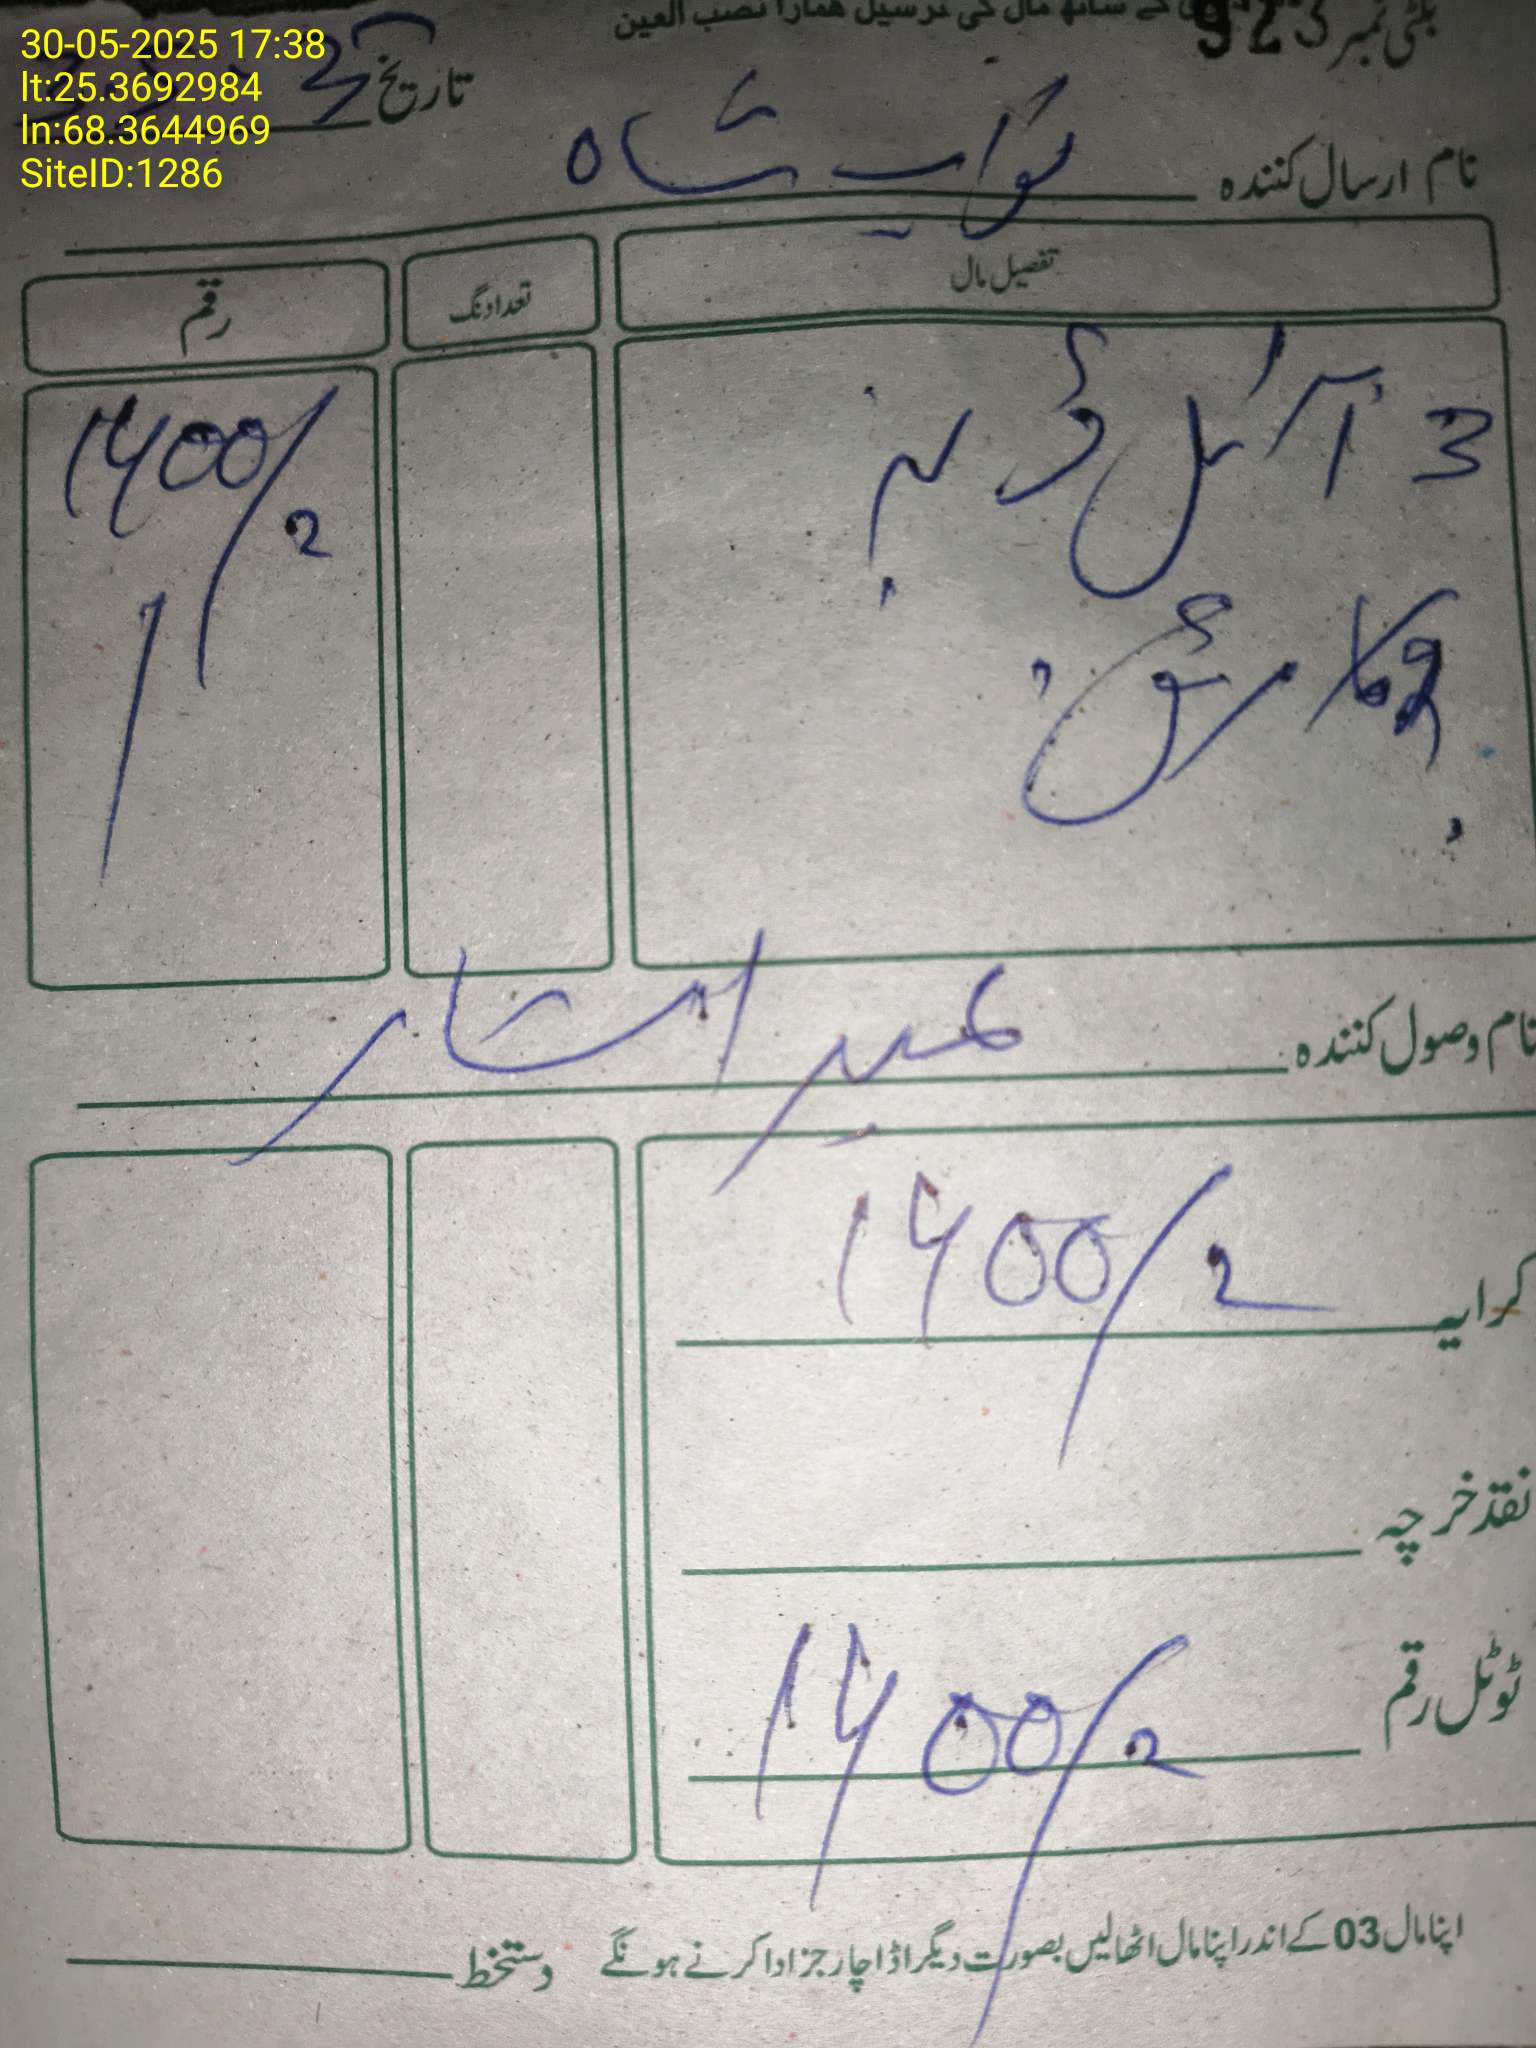 30-05-2025 17:38
lt:25.3692984
ln:68.3644969
SiteID:1286
کے ساتھ مال کی ترسیل ہمارا نصب العین
بلٹی نمبر 923
تاریخ
نام ارسال کنندہ نواب شاہ
تفصیل مال تعداد نگ رقم
3 آئل ڈرینر 1400/2
نام وصول کنندہ
کرایہ 1400/2
نقد خرچہ
ٹوٹل رقم 1400/2
اپنا مال 03 کے اندر اپنا مال اٹھالیں بصورت دیگر اڈا چارجز ادا کرنے ہونگے دستخط